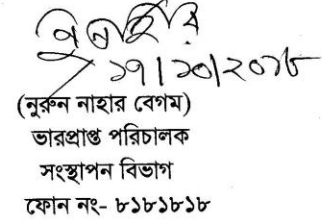 ১৭/১০/২০১৮
(নুরুন নাহার বেগম)
ভারপ্রাপ্ত পরিচালক
সংস্থাপন বিভাগ
ফোন নং- ৮১৮১৮১৮